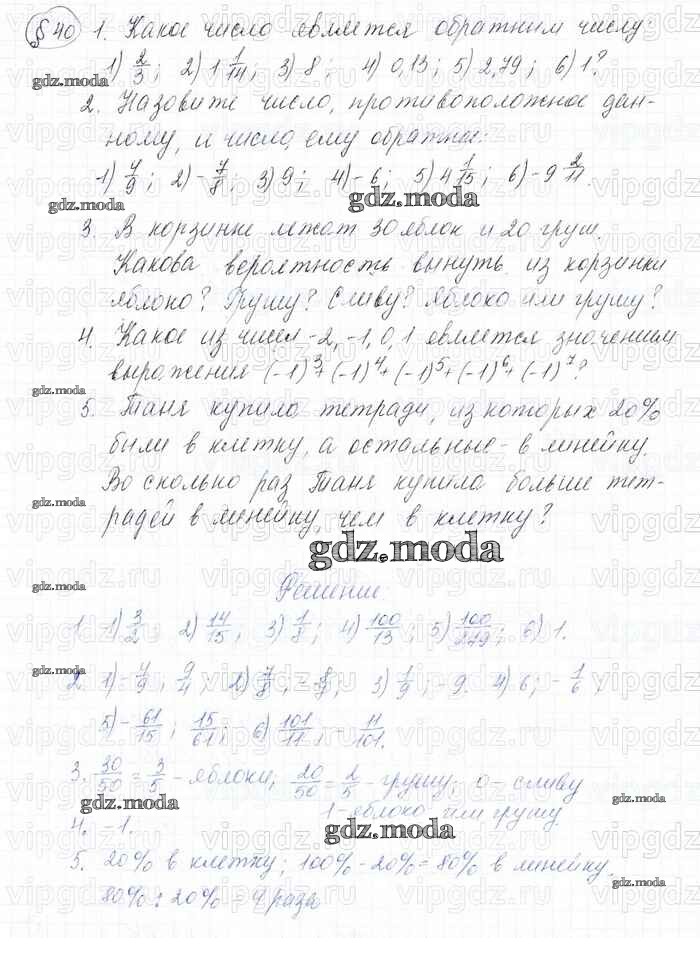 §40 1. Какое число является обратным числу:
1) 2/3; 2) 1 1/14; 3) 8; 4) 0,13; 5) 2,79; 6) 1?
2. Назовите число, противоположное дан-
ному, и число, ему обратны:
1) 4/9; 2) -7/8; 3) 9; 4) -6; 5) 4 1/15; 6) -9 2/11.
3. В корзинке лежат 30 яблок и 20 груш.
Какова вероятность вынуть из корзинки
яблоко? Грушу? Сливу? Яблоко или грушу?
4. Какое из чисел -2, -1, 0, 1 является значением
выражения (-1)^3+(-1)^4+(-1)^5+(-1)^6+(-1)^7?
5. Таня купила тетради, из которых 20%
были в клетку, а остальные - в линейку.
Во сколько раз Таня купила больше тет-
радей в линейку, чем в клетку?
gdz.moda
Решение
1. 1) 3/2; 2) 14/15; 3) 1/8; 4) 100/13; 5) 100/279; 6) 1.
2. 1) -4/9; 9/4; 2) 7/8; -8/7; 3) 1/9; -9. 4) 6; -1/6;
5) -61/15; 15/61; 6) 101/11; -11/101.
3. 30/50 = 3/5 - яблоки; 20/50 = 2/5 - грушу; 0 - сливу
1 - яблоко или грушу
4. -1.
5. 20% в клетку; 100% - 20% = 80% в линейку.
80% : 20% = 4 раза